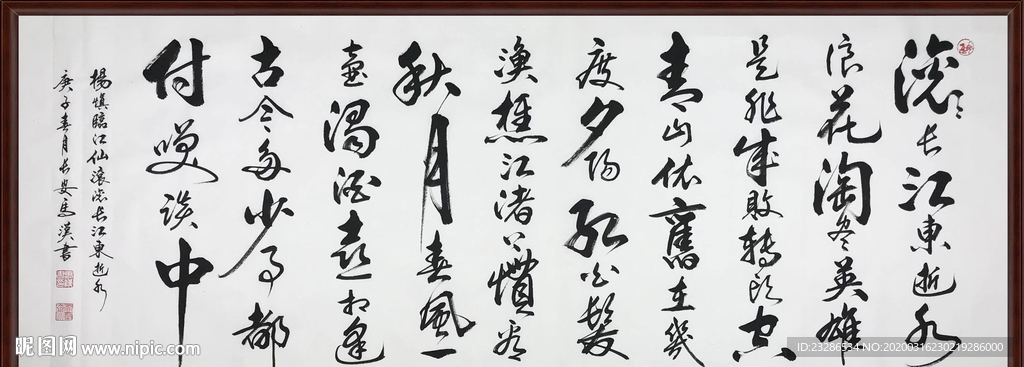 滚滚长江東逝水
浪花淘尽英雄
是非成敗转头空
青山依舊在幾
度夕陽红白髮
渔樵江渚上慣看
秋月春風一
壺濁酒喜相逢
古今多少事都
付笑谈中
楊慎臨江仙滚滚长江東逝水
庚子春月长安馬漢書
昵图网 www.nipic.com
ID:23286534 NO:20200316230219286000